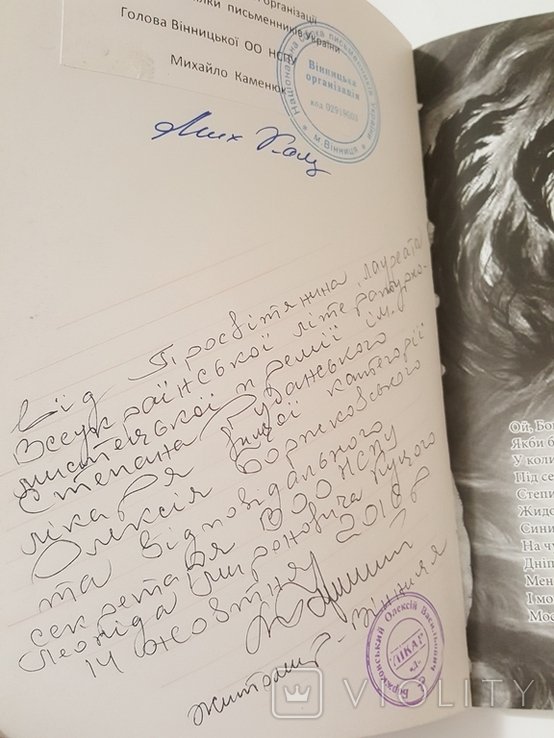 організації
ілки письменників України
Голова Вінницької ОО НСПУ
Михайло Каменюк
Національна спілка письменників України
Вінницька
організація
код 02919603
м. Вінниця
Від Просвітянина, лауреата
Всеукраїнської літературно-
мистецької премії ім.
Степана Руданського
лікаря вищої категорії
Олексія Боржковського
та відповідального
секретаря ВООНСПУ
Леоніда Мироновича Куцого
14 жовтня 2018р
Житомир - Вінниця
Боржковський Олексій Васильович
ЛІКАР
Ой, Бо
Якби б
У коли
Під се
Степи
Жидо
Сини
На чу
Дніп
Мен
І мо
Мос
VIOLITY